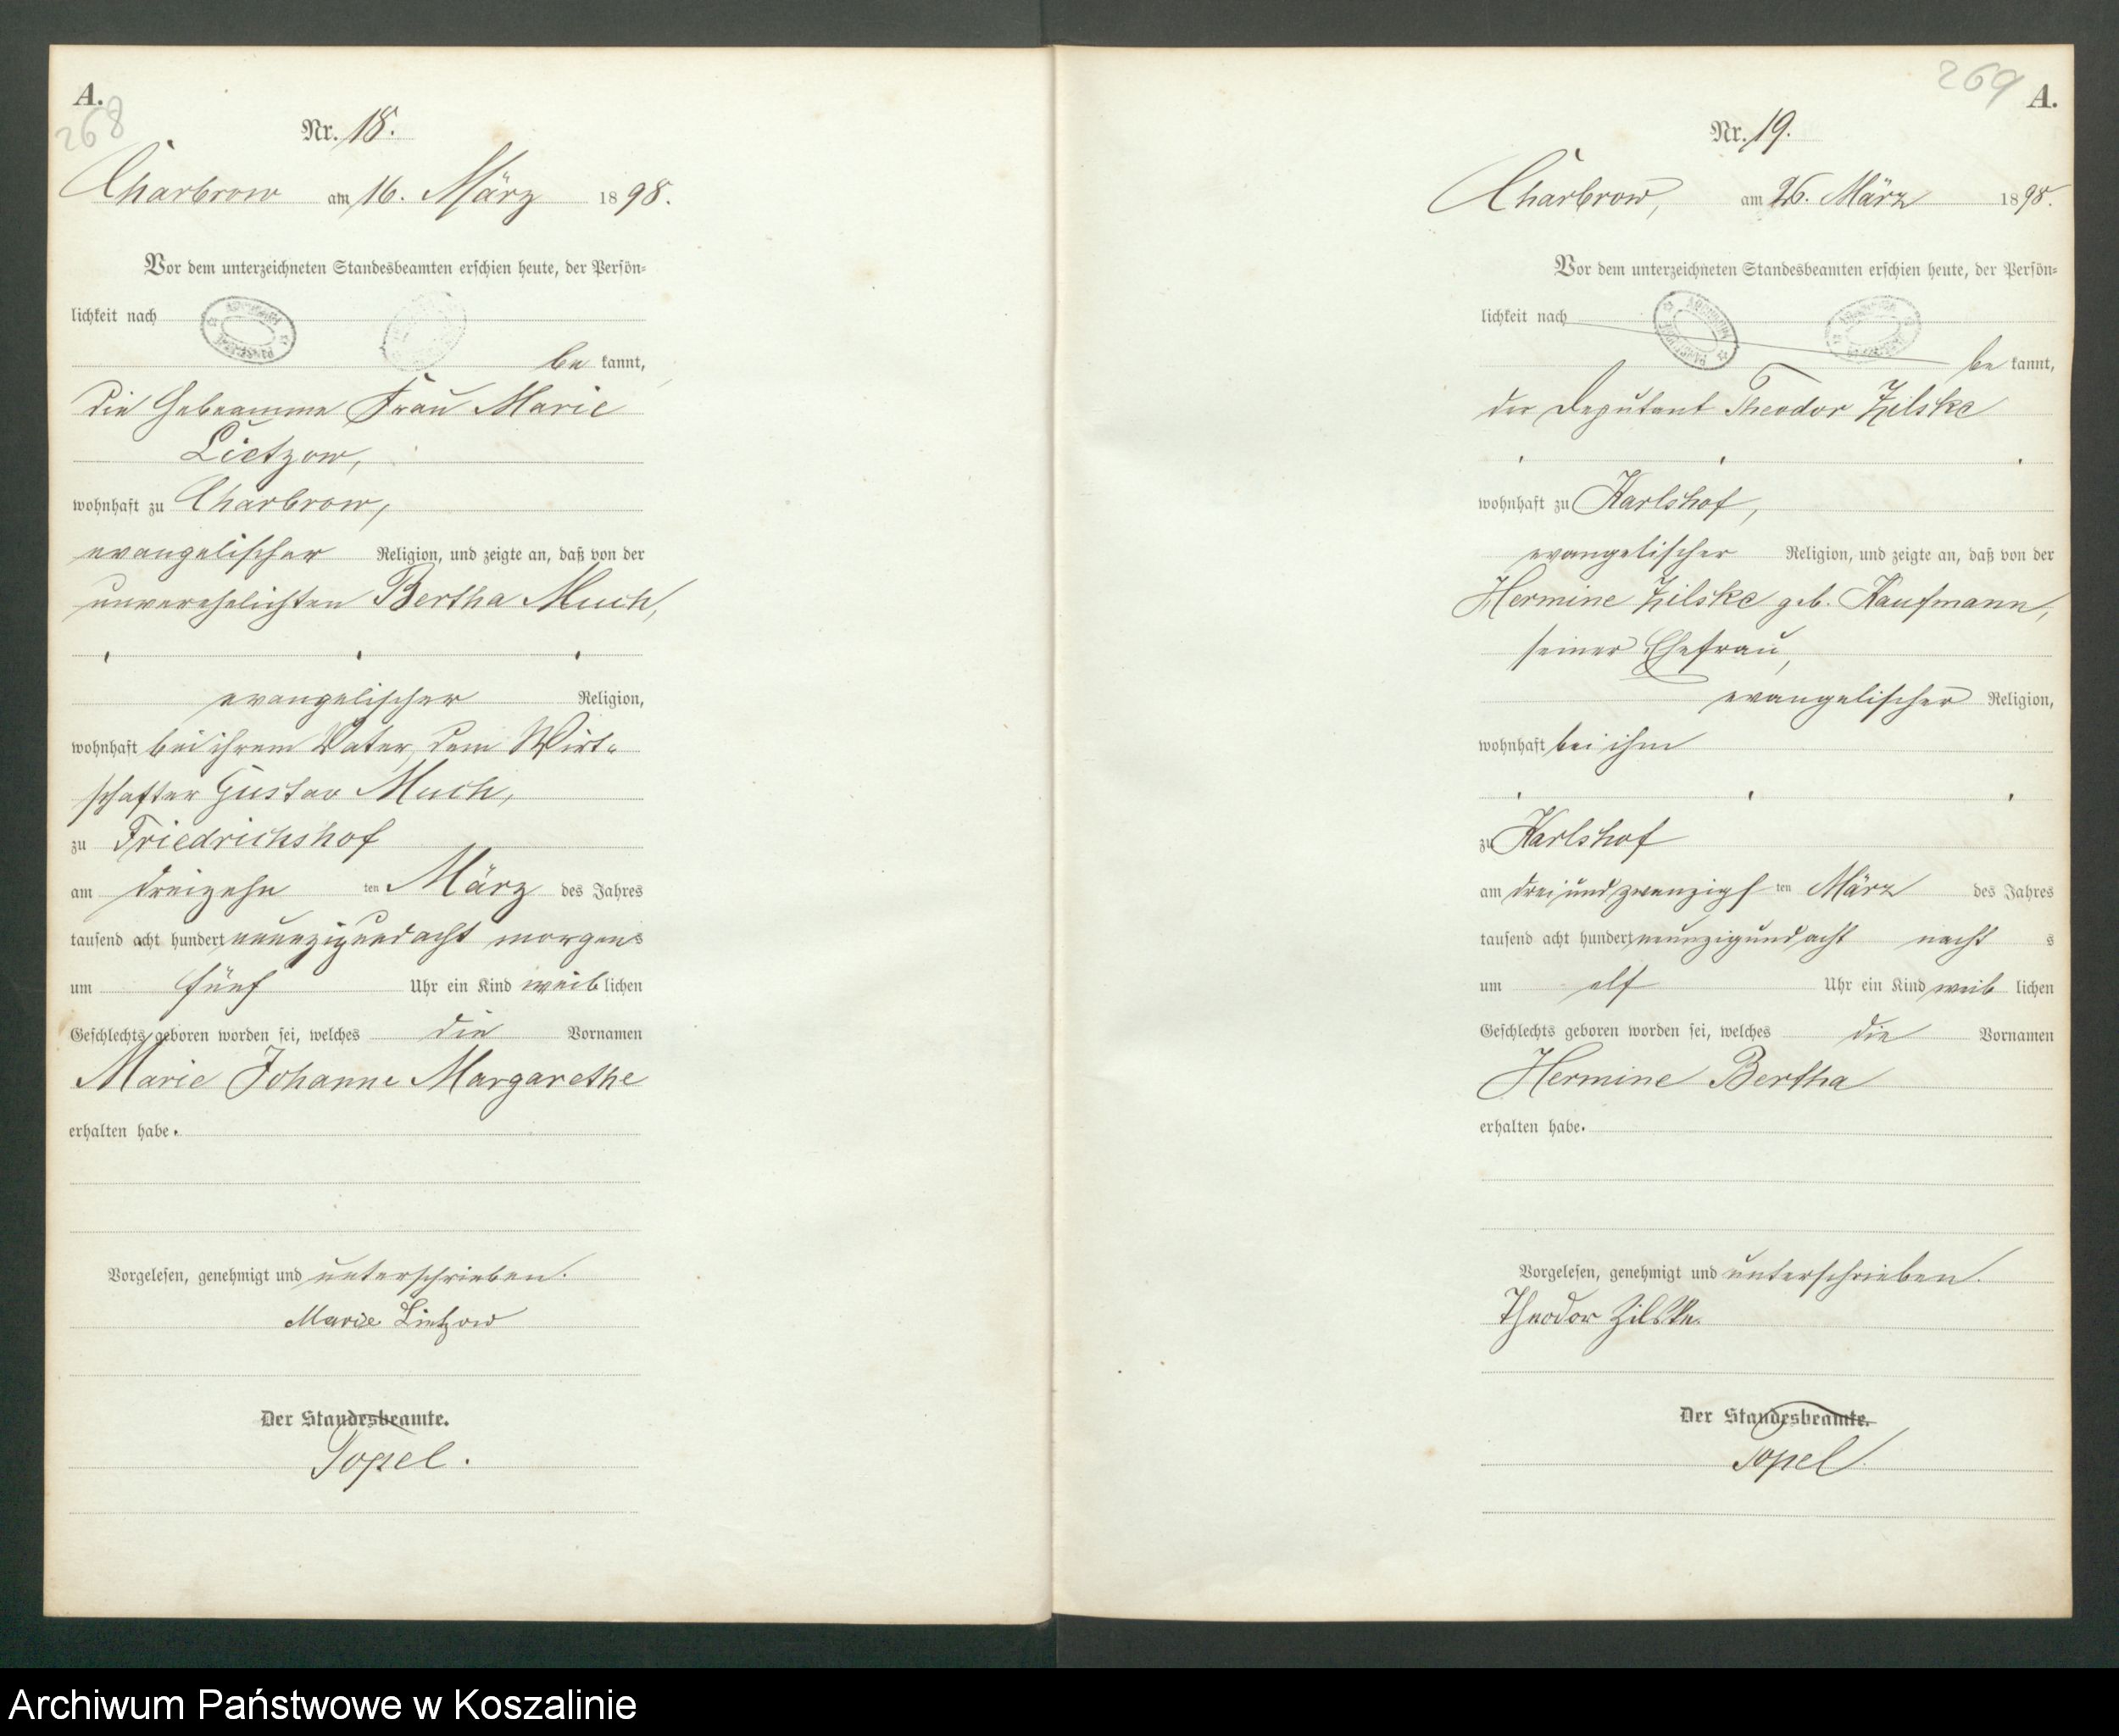 A.
268
Nr. 18.
Charbrow am 16. März 1898.
Vor dem unterzeichneten Standesbeamten erschien heute, der Persön-
lichkeit nach
be kannt,
die Hebeamme Frau Marie
Lietzow,
wohnhaft zu Charbrow,
evangelischer Religion, und zeigte an, daß von der
unverehelichten Bertha Much,
evangelischer Religion,
wohnhaft bei ihrem Vater, dem Wirt-
schafter Gustav Much,
zu Friedrichshof
am dreizehn ten März des Jahres
tausend acht hundert neunzigundacht morgens
um fünf Uhr ein Kind weiblichen
Geschlechts geboren worden sei, welches die Vornamen
Marie Johanne Margarethe
erhalten habe.
Vorgelesen, genehmigt und unterschrieben.
Marie Lietzow
Der Standesbeamte.
Topel.
269
A.
Nr. 19.
Charbrow, am 26. März 1898.
Vor dem unterzeichneten Standesbeamten erschien heute, der Persön-
lichkeit nach
be kannt,
der Deputant Theodor Zilske
wohnhaft zu Karlshof,
evangelischer Religion, und zeigte an, daß von der
Hermine Zilske geb. Kaufmann,
seiner Ehefrau,
evangelischer Religion,
wohnhaft bei ihm
zu Karlshof
am dreiundzwanzigs ten März des Jahres
tausend acht hundert neunzigundacht nacht s
um elf Uhr ein Kind weib lichen
Geschlechts geboren worden sei, welches die Vornamen
Hermine Bertha
erhalten habe.
Vorgelesen, genehmigt und unterschrieben.
Theodor Zilske.
Der Standesbeamte.
Topel.
Archiwum Państwowe w Koszalinie